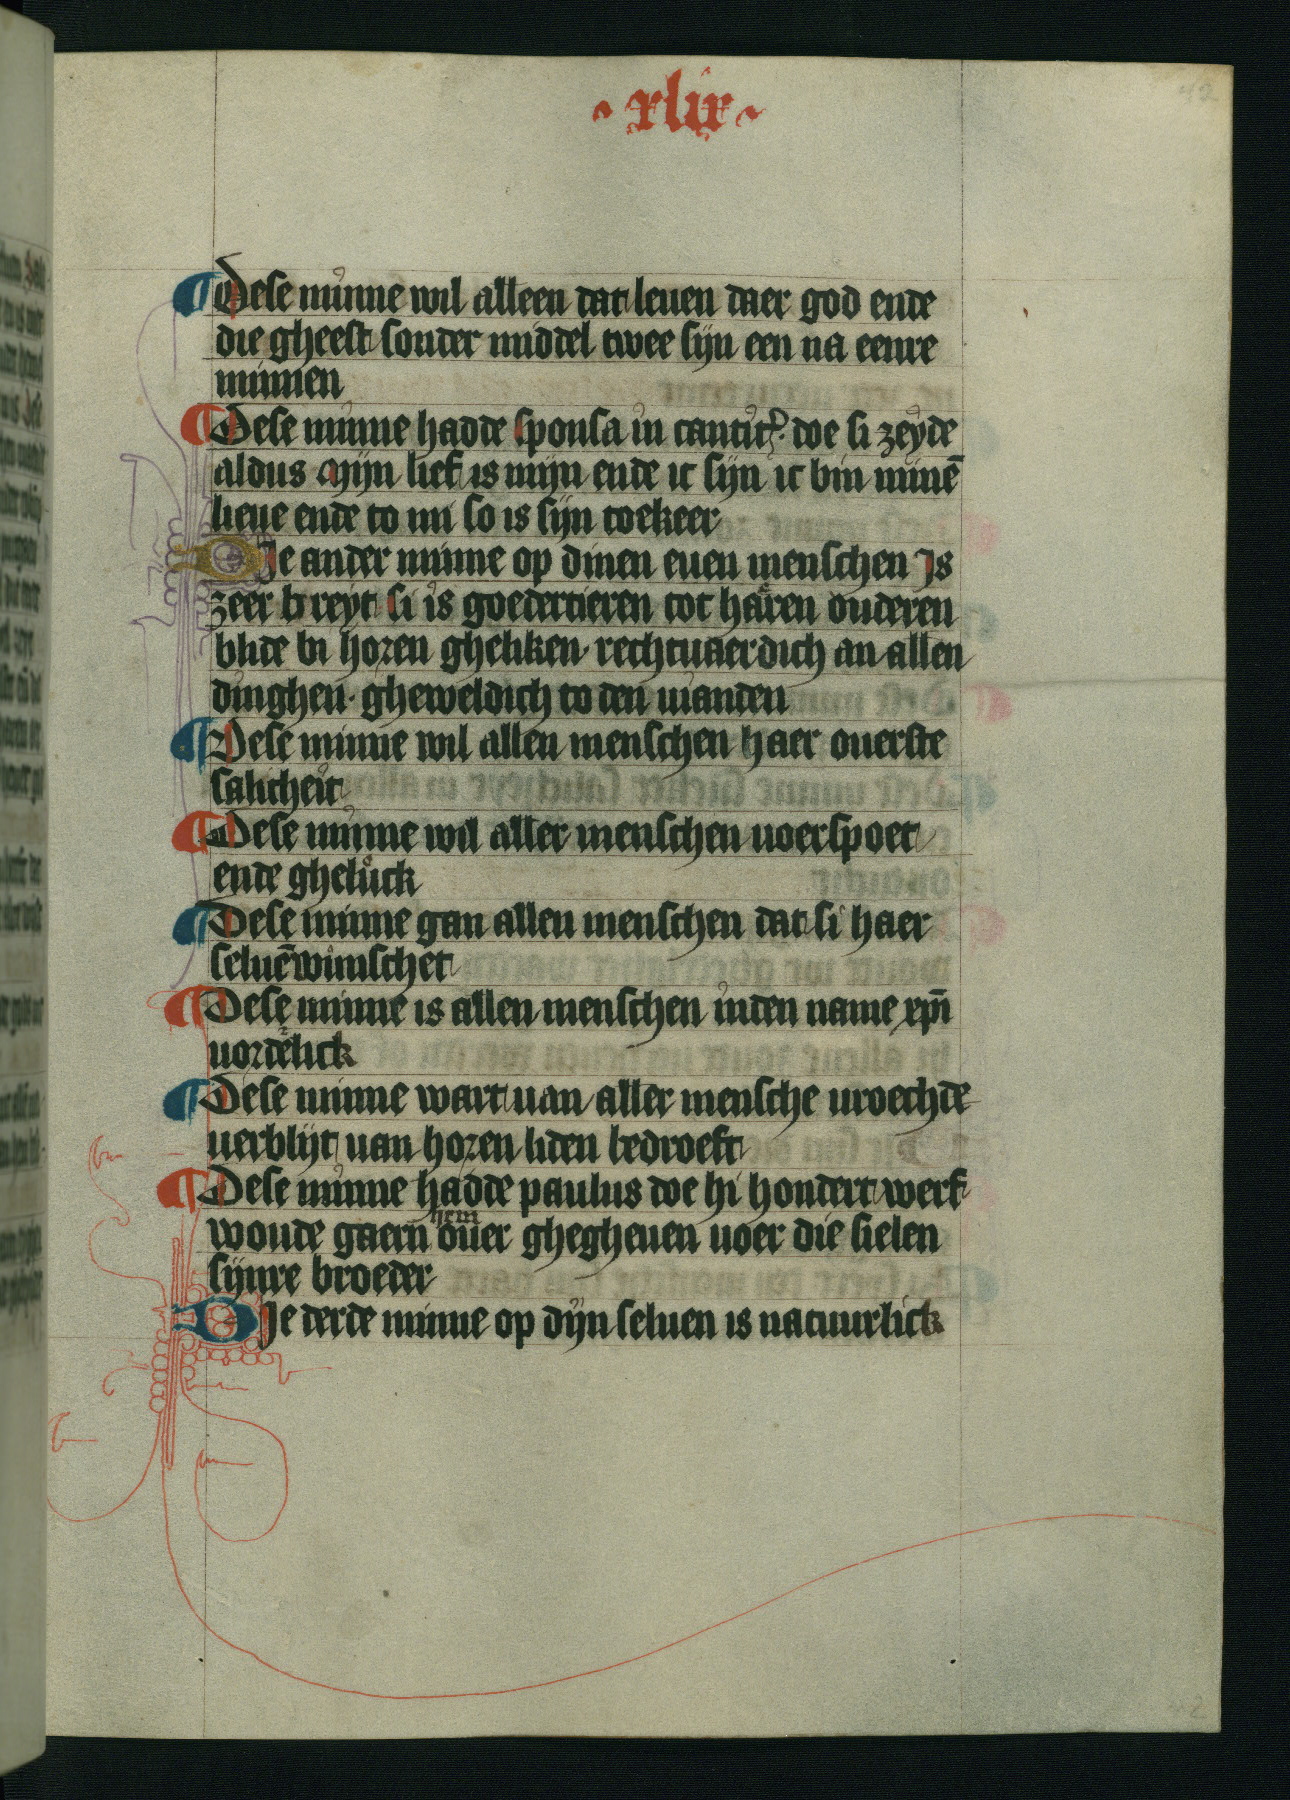 · xlix ·
¶ Dese minne wil alleen dat leuen daer god ende
die gheest sonder middel twee sijn een na eenre
minnen
¶ Dese minne hadde sponsa in cantic̄ · doe si zeyde
aldus Mijn lief is mijn ende ic sijn ic bin minē
lieue ende to mi so is sijn toekeer
DIe ander minne op dinen euen menschen Is
zeer breyt si is goedertieren tot haren ouderen
blide bi horen gheliken · rechtuaerdich an allen
dinghen · gheweldich to den uianden
¶ Dese minne wil allen menschen haer ouerste
salicheit
¶ Dese minne wil aller menschen uoerspoet
ende gheluck
¶ Dese minne gan allen menschen dat si haer
seluē winschet
¶ Dese minne is allen menschen inden name xpi̅
uorderlick
¶ Dese minne wart uan aller mensche uroechde
uerblijt uan horen liden bedroeft
¶ Dese minne hadde paulus doe hi hondert werf
woude gaern hem ouer ghegheuen uoer die sielen
sijnre broeder
DIe derde minne op dijn seluen is natuurlick
42